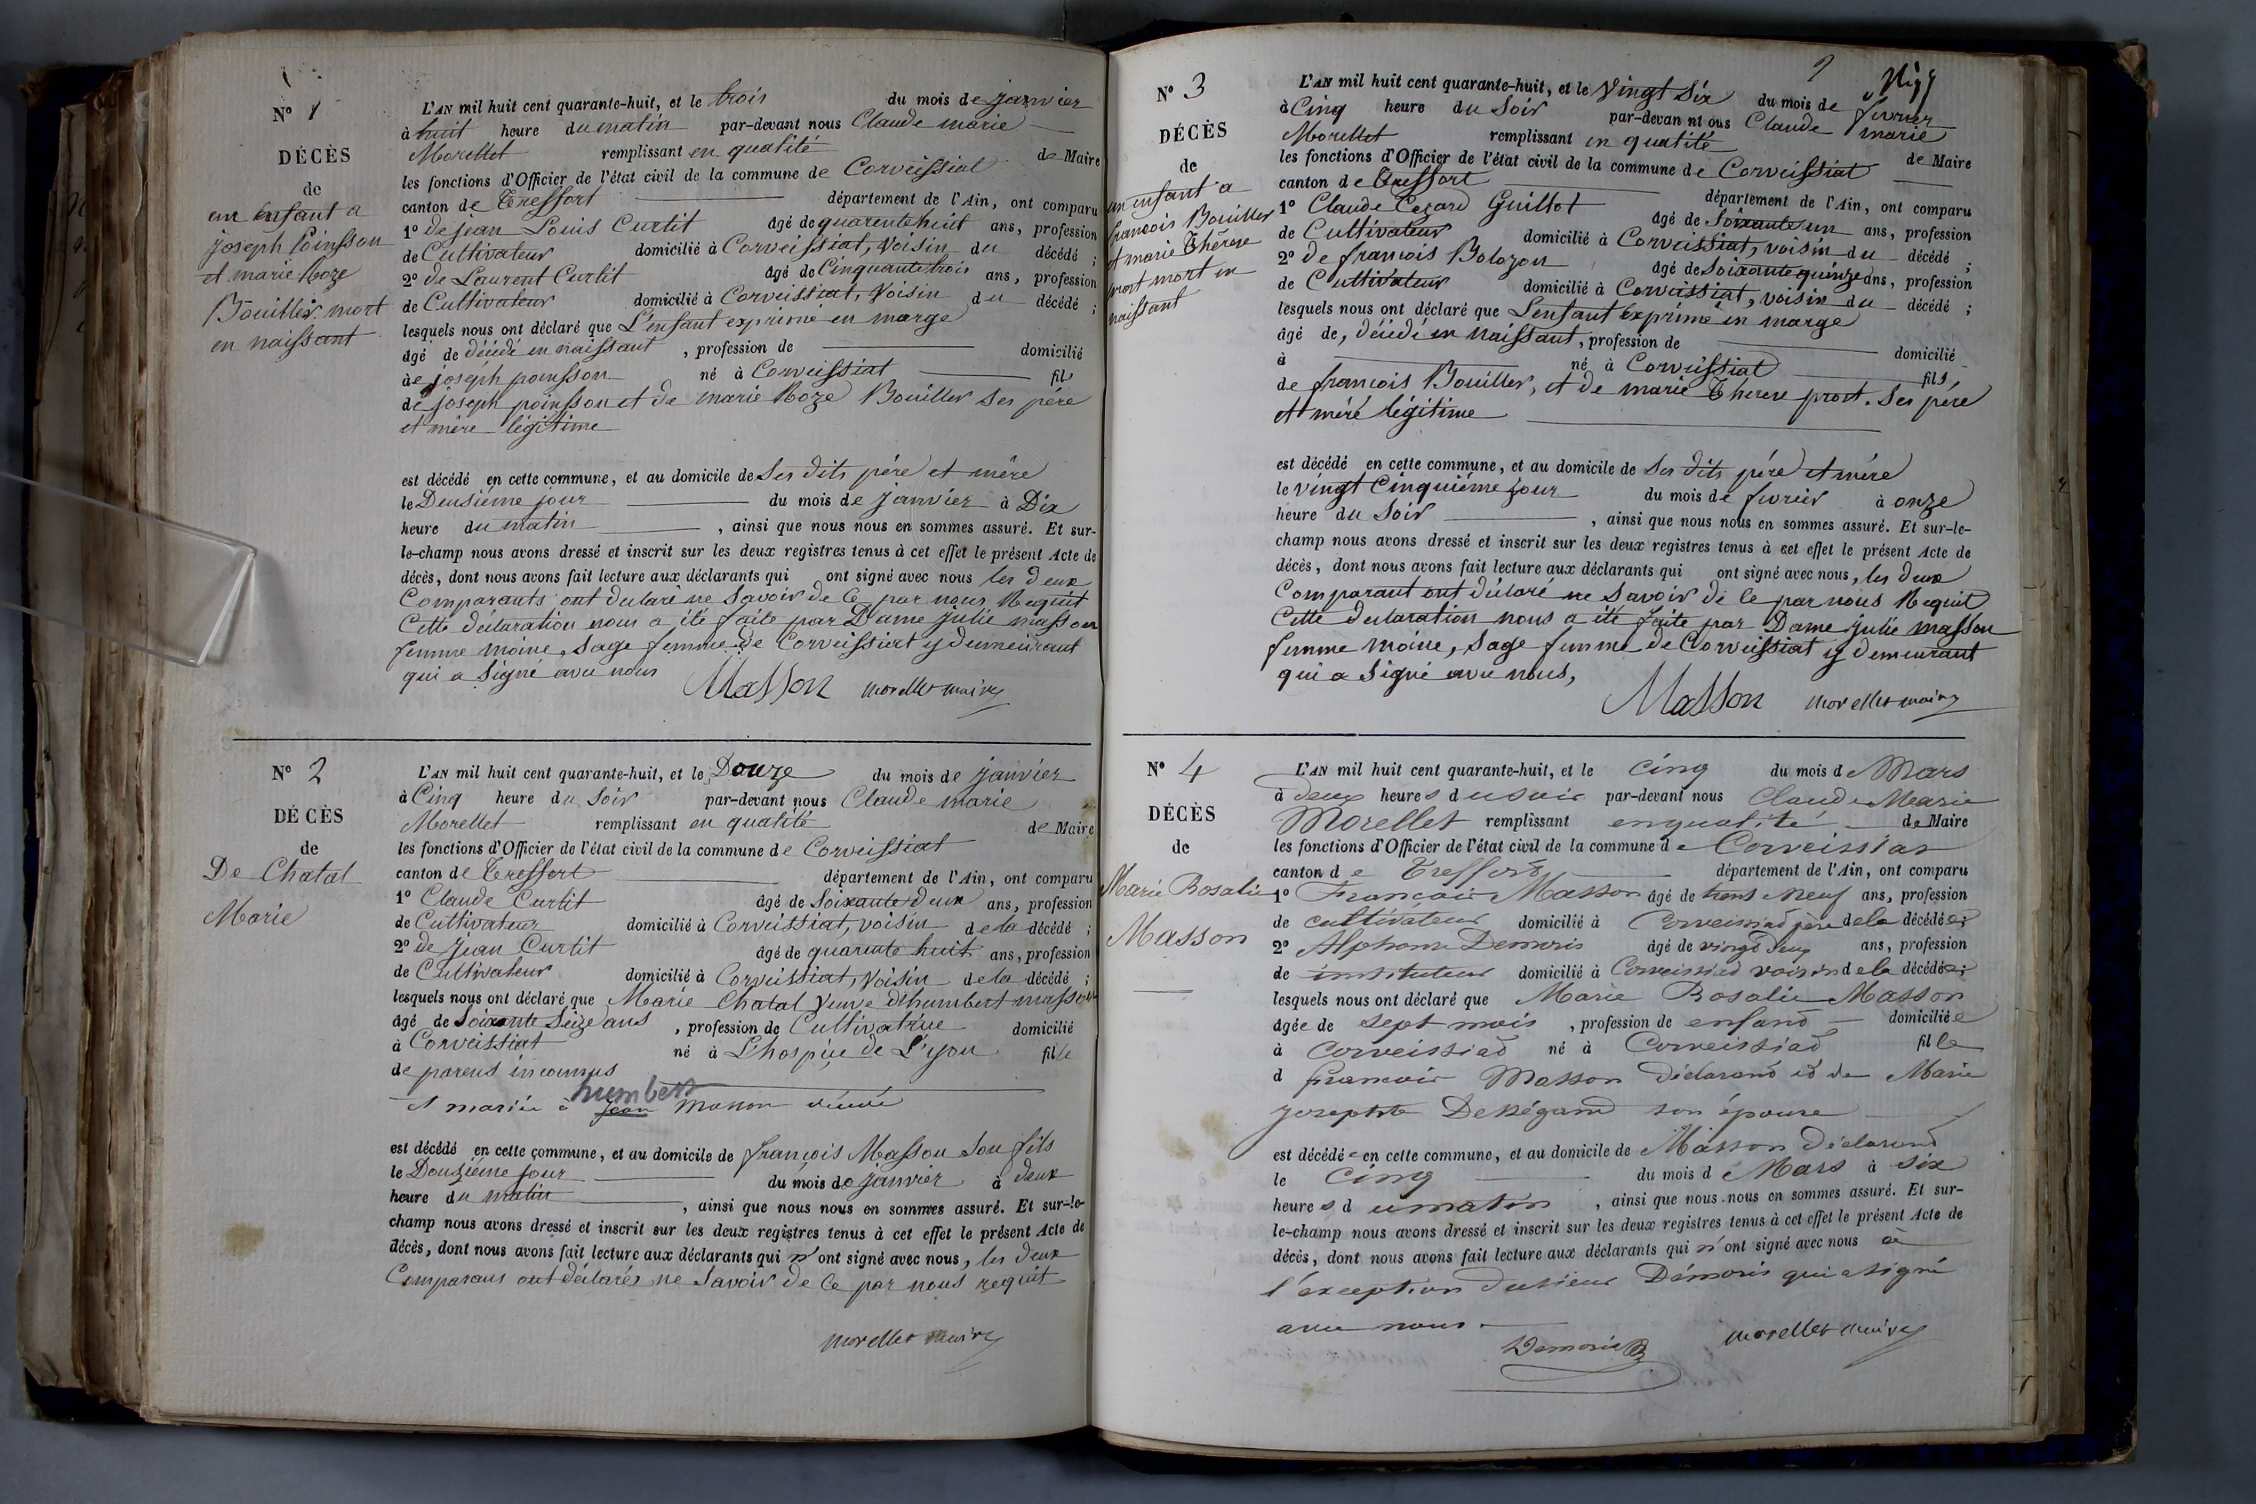 N° 1
DÉCÈS
de
un Enfant a
joseph Poinsson
et marie Roze
Bouiller mort
en naissant
L'AN mil huit cent quarante-huit, et le trois du mois de janvier
à huit heure du matin par-devant nous Claude marie
Morellet remplissant en qualité de Maire
les fonctions d'Officier de l'état civil de la commune de Corveissiat
canton de Treffort département de l'Ain, ont comparu
1° de jean Louis Curtit âgé de quarente huit ans, profession
de Cultivateur domicilié à Corveissiat, Voisin du décédé ;
2° de Laurent Curtit âgé de Cinquante trois ans, profession
de Cultivateur domicilié à Corveissiat, Voisin du décédé ;
lesquels nous ont déclaré que L'enfant exprimé en marge
âgé de décédé en naissant , profession de domicilié
de joséph poinsson né à Corveissiat fils
de joseph poinsson et de marie Roze Bouiller Ses père
et mère légitime
est décédé en cette commune, et au domicile de Ses dits père et mère
le Deusième jour du mois de janvier à Dix
heure du matin , ainsi que nous nous en sommes assuré. Et sur-
le-champ nous avons dressé et inscrit sur les deux registres tenus à cet effet le présent Acte de
décès, dont nous avons fait lecture aux déclarants qui ont signé avec nous les deux
Comparants ont déclaré ne Savoir de Ce par nous Requit
Cette déclaration nous a été faite par Dame julie masson
femme moine, Sage femme de Corveissiat y demeurant
qui a Signé avec nous
Masson morellet maire
N° 2
DÉCÈS
de
De Chatal
Marie
L'AN mil huit cent quarante-huit, et le Douze du mois de janvier
à Cinq heure du Soir par-devant nous Claude marie
Morellet remplissant en qualité de Maire
les fonctions d'Officier de l'état civil de la commune de Corveissiat
canton de Treffort département de l'Ain, ont comparu
1° Claude Curtit âgé de Soixante Deux ans, profession
de Cultivateur domicilié à Corveissiat, voisin de la décédé ;
2° de Jean Curtit âgé de quarente huit ans, profession
de Cultivateur domicilié à Corveissiat, Voisin de la décédé ;
lesquels nous ont déclaré que Marie Chatal Veuve d'humbert masson
âgé de Soixante Seize ans , profession de Cultivatrice domicilié
à Corveissiat né à L'hospice de L'yon fille
de parens inconnus
humbert
et mariée à Jean Masson décédé
est décédé en cette commune, et au domicile de françois Masson Son fils
le Douzième jour du mois de janvier à deux
heure du matin , ainsi que nous nous en sommes assuré. Et sur-le-
champ nous avons dressé et inscrit sur les deux registres tenus à cet effet le présent Acte de
décès, dont nous avons fait lecture aux déclarants qui n'ont signé avec nous, les deux
Comparans ont déclarés ne Savoir de Ce par nous requit
morellet maire
2
N° 3
DÉCÈS
de
un enfant a
françois Bouiller
et marie Thérese
prost mort en
naissant
L'AN mil huit cent quarante-huit, et le Vingt Six du mois de fevrier
à Cinq heure du Soir par-devan nt ous Claude marie
Morellet remplissant en qualité de Maire
les fonctions d'Officier de l'état civil de la commune de Corveissiat
canton de Treffort département de l'Ain, ont comparu
1° Claude Cezard Guillot âgé de Soixante un ans, profession
de Cultivateur domicilié à Corveissiat, voisin du décédé ;
2° de francois Bolozon âgé de Soixante quinze ans, profession
de Cultivateur domicilié à Corveissiat, voisin du décédé ;
lesquels nous ont déclaré que L'enfant Exprimé en marge
âgé de, décédé en naissant, profession de domicilié
à né à Corveissiat fils
de francois Bouiller, et de marie Therese prost. Ses père
et mère légitime
est décédé en cette commune, et au domicile de Ses dits père et mère
le vingt Cinquiéme jour du mois de fevrier à onze
heure du Soir , ainsi que nous nous en sommes assuré. Et sur-le-
champ nous avons dressé et inscrit sur les deux registres tenus à cet effet le présent Acte de
décès, dont nous avons fait lecture aux déclarants qui ont signé avec nous, les deux
Comparant ont déclaré ne Savoir de Ce par nous Requit
Cette declaration nous a été faite par Dame julie masson
femme moine, Sage femme de Corveissiat y demeurant
qui a Signé avec nous,
Masson morellet maire
N° 4
DÉCÈS
de
Marie Rosalie
Masson
L'AN mil huit cent quarante-huit, et le cinq du mois de Mars
à deux heures du soir par-devant nous Claude Marie
Morellet remplissant en qualité de Maire
les fonctions d'Officier de l'état civil de la commune de Corveissiat
canton de Treffort département de l'Ain, ont comparu
1° François Masson âgé de trente neuf ans, profession
de cultivateur domicilié à Corveissiat père de la décédée;
2° Alphonse Demoris âgé de vingt deux ans, profession
de instituteur domicilié à Corveissiat voisin de la décédée;
lesquels nous ont déclaré que Marie Rosalie Masson
âgée de sept mois , profession de enfant domiciliée
à Corveissiat né à Corveissiat fille
d françois Masson déclarant et de Marie
josephte son épouse
est décédée en cette commune, et au domicile de Masson déclarant
le cinq du mois d Mars à six
heures d u matin , ainsi que nous nous en sommes assuré. Et sur-
le-champ nous avons dressé et inscrit sur les deux registres tenus à cet effet le présent Acte de
décès, dont nous avons fait lecture aux déclarants qui n'ont signé avec nous a
l'exception du sieur Démoris qui a signé
avec nous
Demoris morellet maire